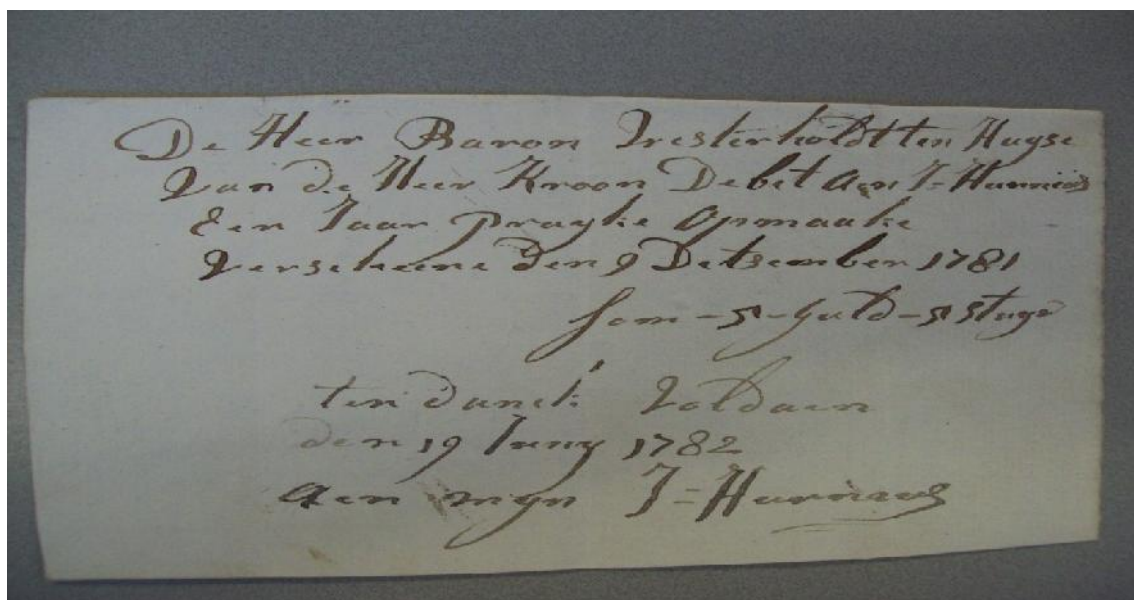 De Heer Baron Westerholdt ten Huyse
Van de Heer Kroon Debet aen J=
Een Jaar Pruyke Opmaake
Verscheene den 9 Detsember 1781
som - 5 - guld - 5 stuyv
ten danck Voldaen
den 19 Juny 1782
aen myn J=